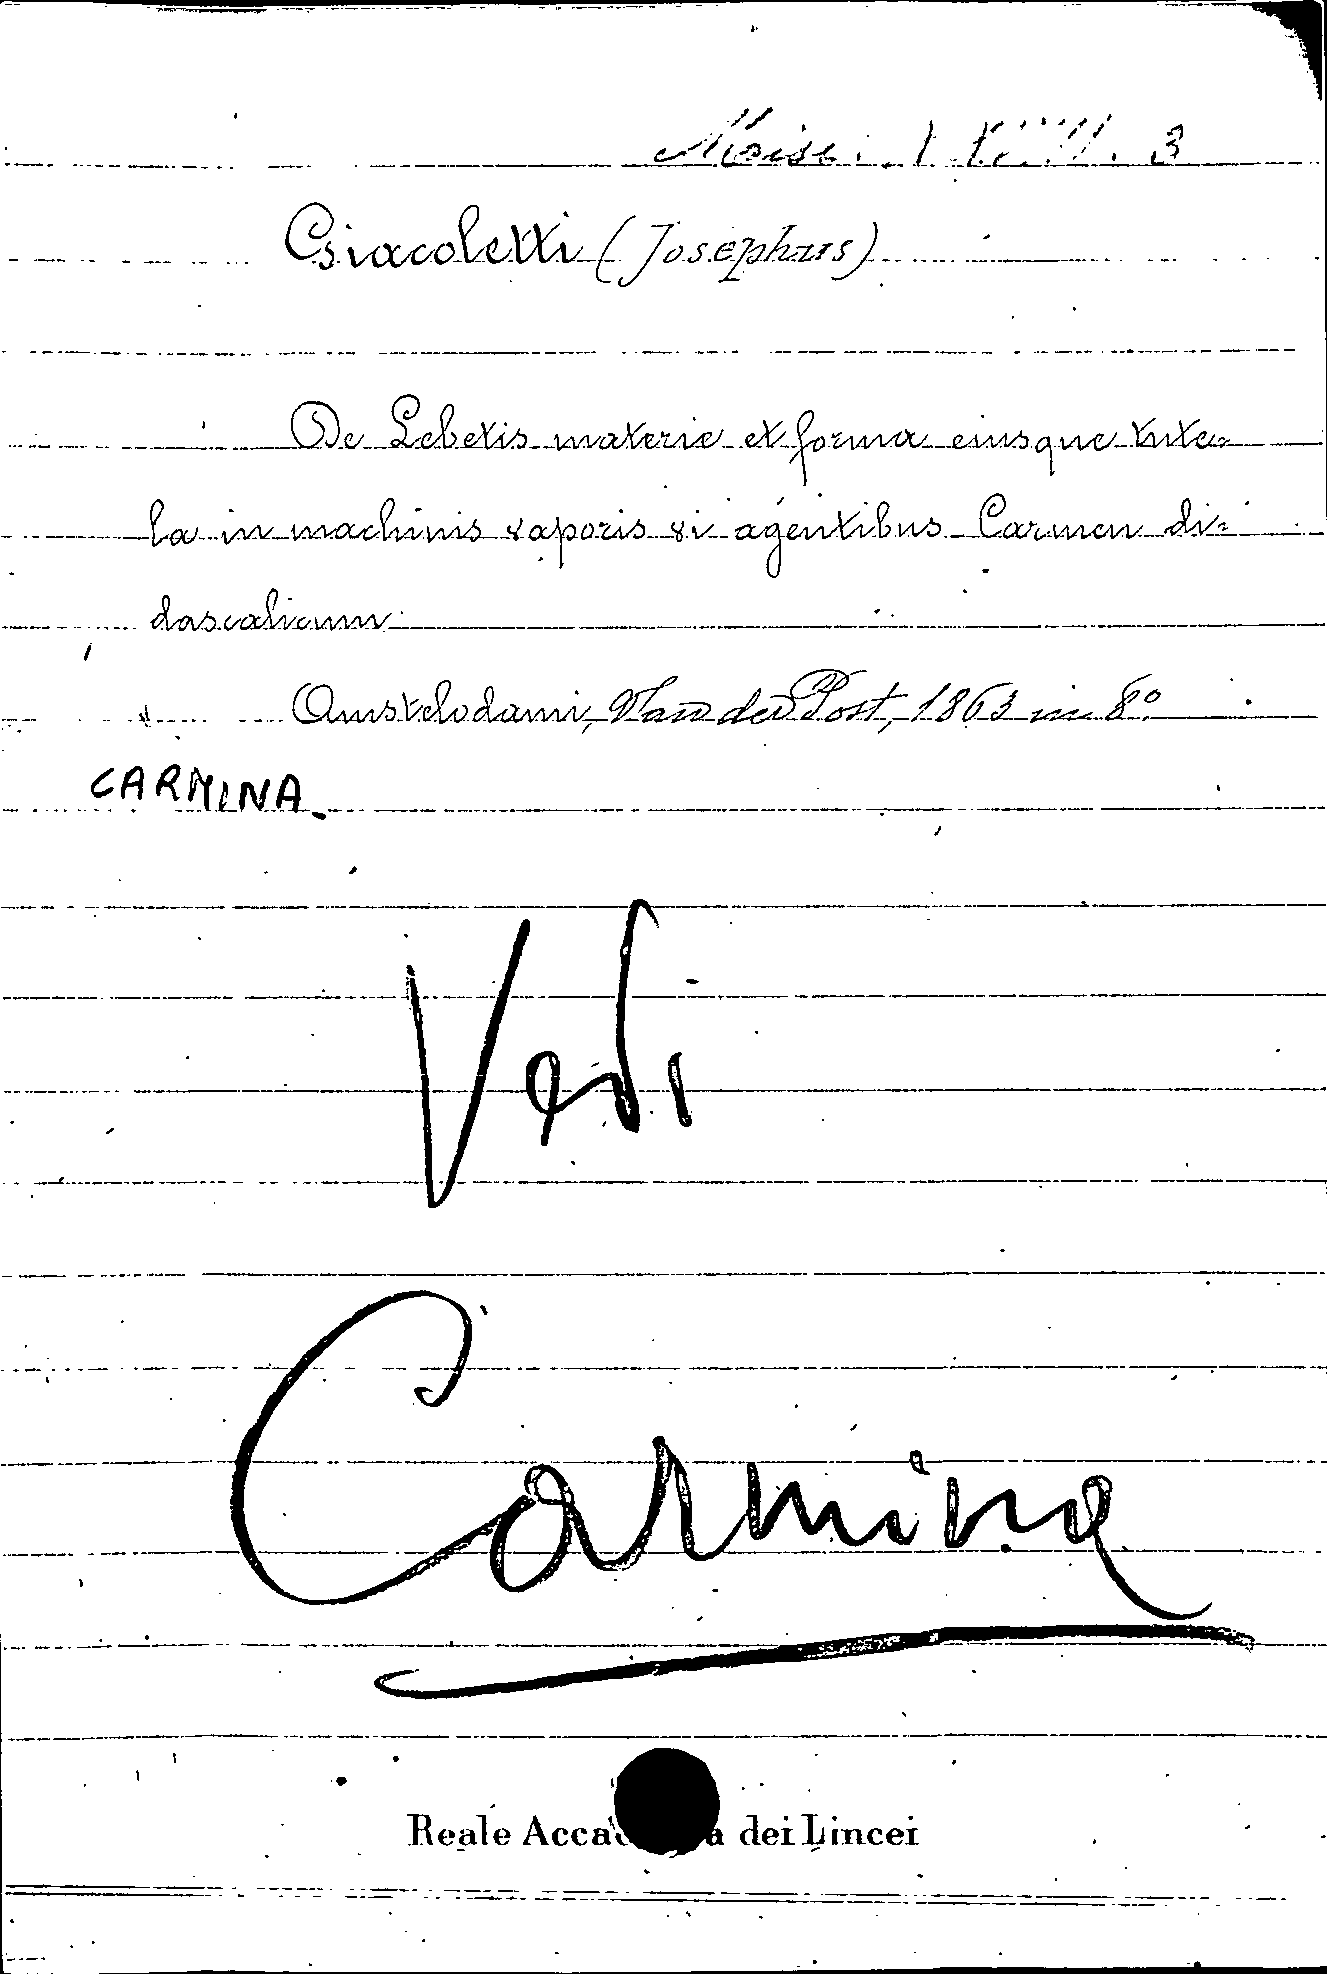 Giacoletti (Josephus)
De Lebetis materie et forma eiusque tute=
la in machinis vaporis vi agentibus Carmen di=
dascalicum
Amstelodami, Van der Post, 1863 in 8º
CARMINA
Vedi
Carmina
Reale dei Lincei